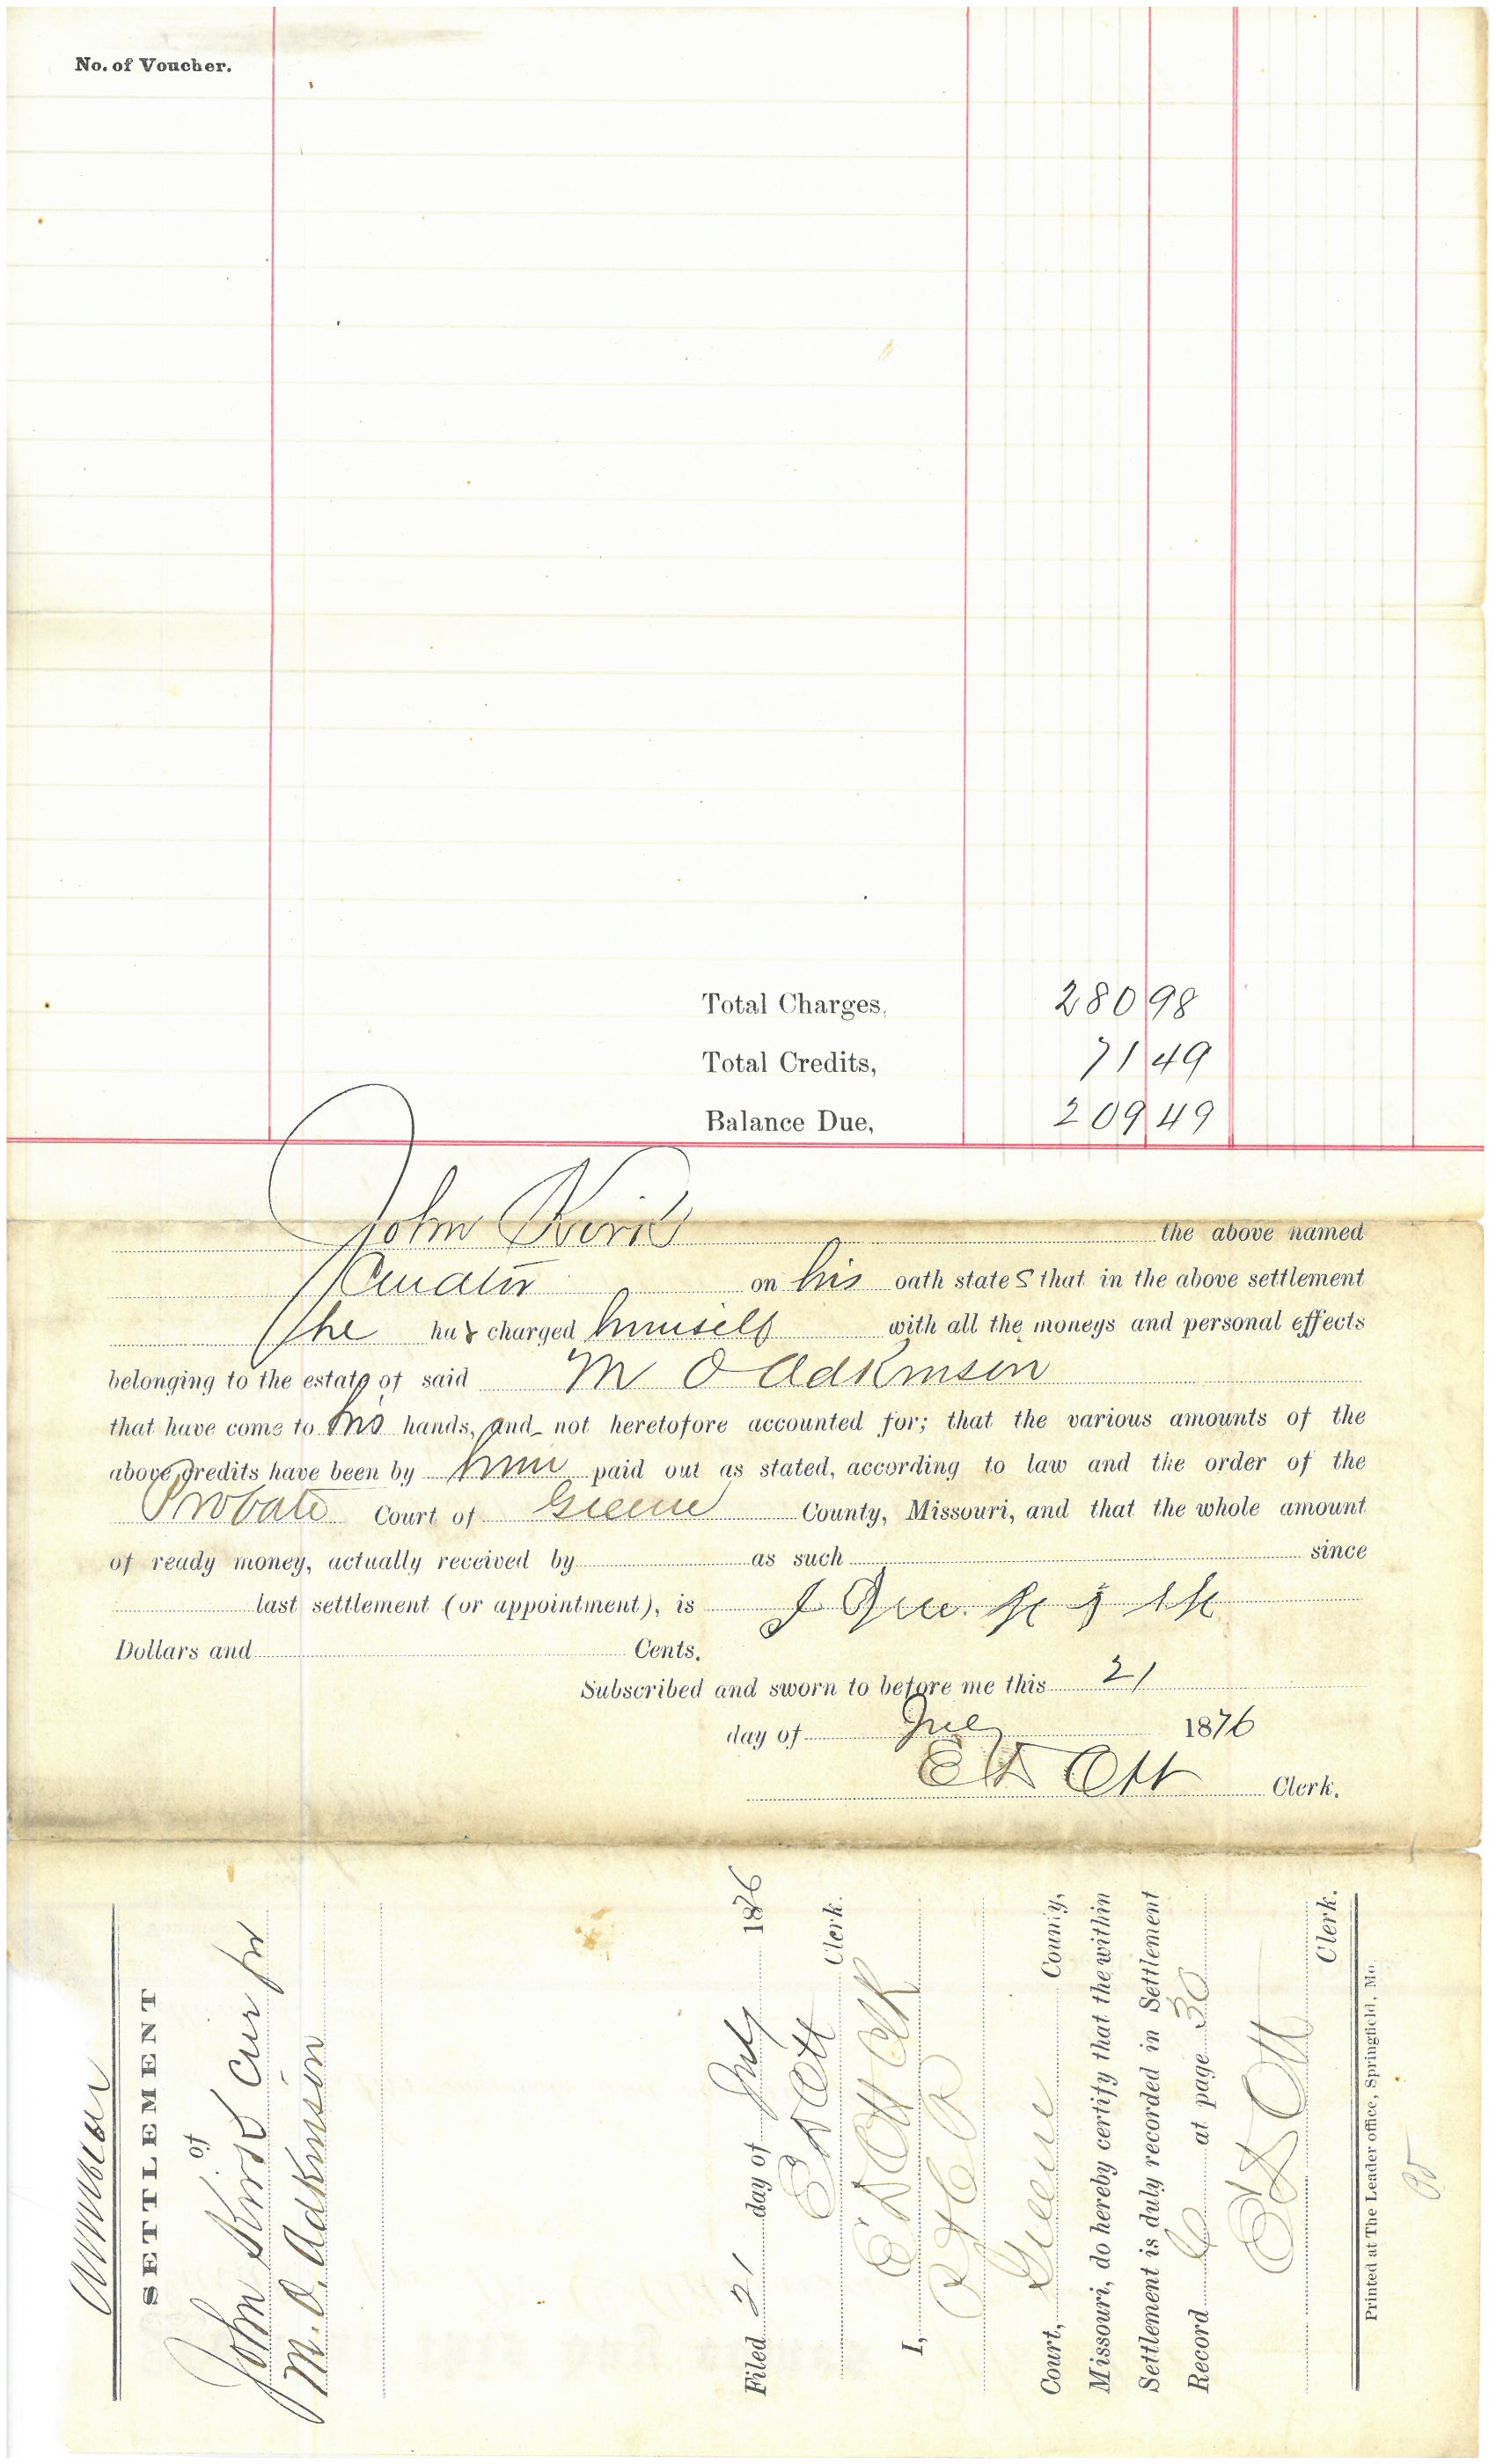 No. of Voucher.
Total Charges, 280 98
Total Credits, 71 49
Balance Due, 209 49
John the above named
Curator on his oath states that in the above settlement
he has charged himself with all the moneys and personal effects
belonging to the estate of said M O Adkinson
that have come to his hands, and not heretofore accounted for; that the various amounts of the
above credits have been by him paid out as stated, according to law and the order of the
Probate Court of Greene County, Missouri, and that the whole amount
of ready money, actually received by as such since
last settlement (or appointment), is
Dollars and Cents.
Subscribed and sworn to before me this 21
day of July 1876
Ott Clerk.
SETTLEMENT
of
John Cur for
M. O. Adkinson
Filed 21 day of July 1876
Ott Clerk.
I, Ott Clk
Court, Greene County,
Missouri, do hereby certify that the within
Settlement is duly recorded in Settlement
Record at page 30
Ott
Clerk.
Printed at The Leader office, Springfield, Mo.